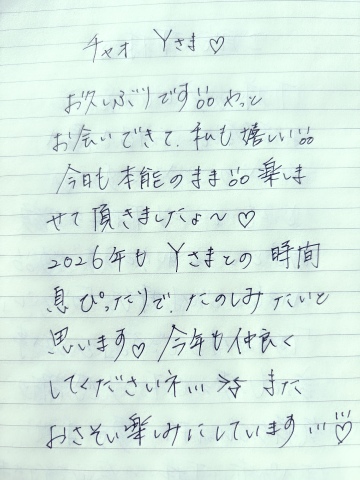 チャオ Yさま♡
お久しぶりです!!。。やっと
お会いできて、私も嬉しい!!。。
今日も本能のまま!!。。楽しま
せて頂きましたょ〜♡
2026年も Yさまとの 時間
息ぴったりで、たのしみたいと
思います♡ 今年も仲良く
してくださいネ!!! また
おさそい楽しみにしています!!!♡